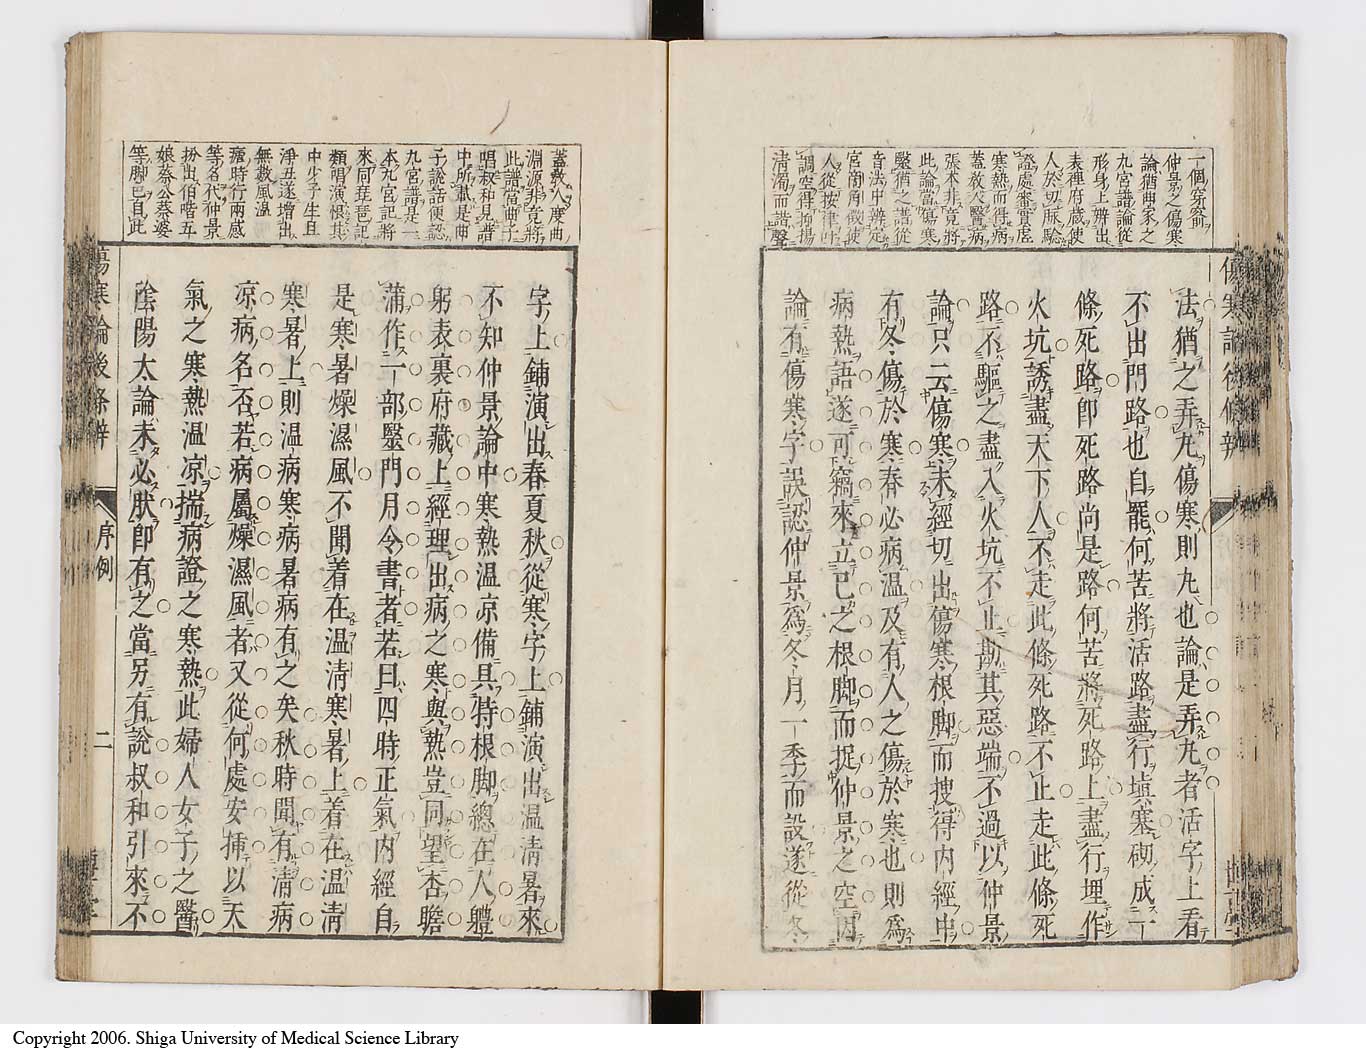 一個穿窬
仲景之傷寒
論猶曲家之
九宮譜論從
形身上辨出
表裡府藏使
人於切脈驗
證處審實虛
寒熱而得病
蓋教人醫病
張本非竟將
此論當傷寒
醫猶之譜從
音法中辨定
宮商角徵使
人從按律叶
調空得抑揚
清濁而諧聲
法猶之弄丸傷寒則丸也論是弄丸者活字上看
不出門路也自罷何苦將活路盡行塡塞砌成一
條死路卽死路尚是路何苦將死路上盡行埋作
火坑誘盡天下人不走此條死路不止走此條死
路不驅之盡入火坑不止勘其惡端不過以仲景
論只云傷寒未經切出傷寒根脚而搜得内經中
有冬傷於寒春必病溫及有人之傷於寒也則爲
病熱語遂可竊來立已之根脚而捉仲景之空因
論有傷寒字誤認仲景爲冬月一季而設遂從冬
傷寒論後條辨
蓋教人度曲
淵源非竟將
此譜當曲子
唱叔和見譜
中所盡是曲
子說話便認
九宮譜是一
本九宮記將
來同琵琶記
類唱演恨其
中少了生旦
淨丑遂增出
無數風溫
瘟時行兩感
等名代仲景
扮出伯喈五
娘蔡公蔡婆
等脚色自此
字上鋪演出春夏秋從寒字上鋪演出溫清暑來
不知仲景論中寒熱溫凉備具特根脚總在人軆
躬表裏府藏上經理出病之寒與熱豈同望杏瞻
蒲作一部醫門月令書者若曰四時正氣内經自
是寒暑燥濕風不聞着在溫清寒暑上着在溫清
寒暑上則溫病寒病暑病有之矣秋時聞有清病
凉病名否若病屬燥濕風者又從何處安揷以天
氣之寒熱溫凉揣病證之寒熱此婦人女子之醫
陰陽太論未必肰卽有之當另有說叔和引來不
傷寒論後條辨
序例
二
Copyright 2006. Shiga University of Medical Science Library